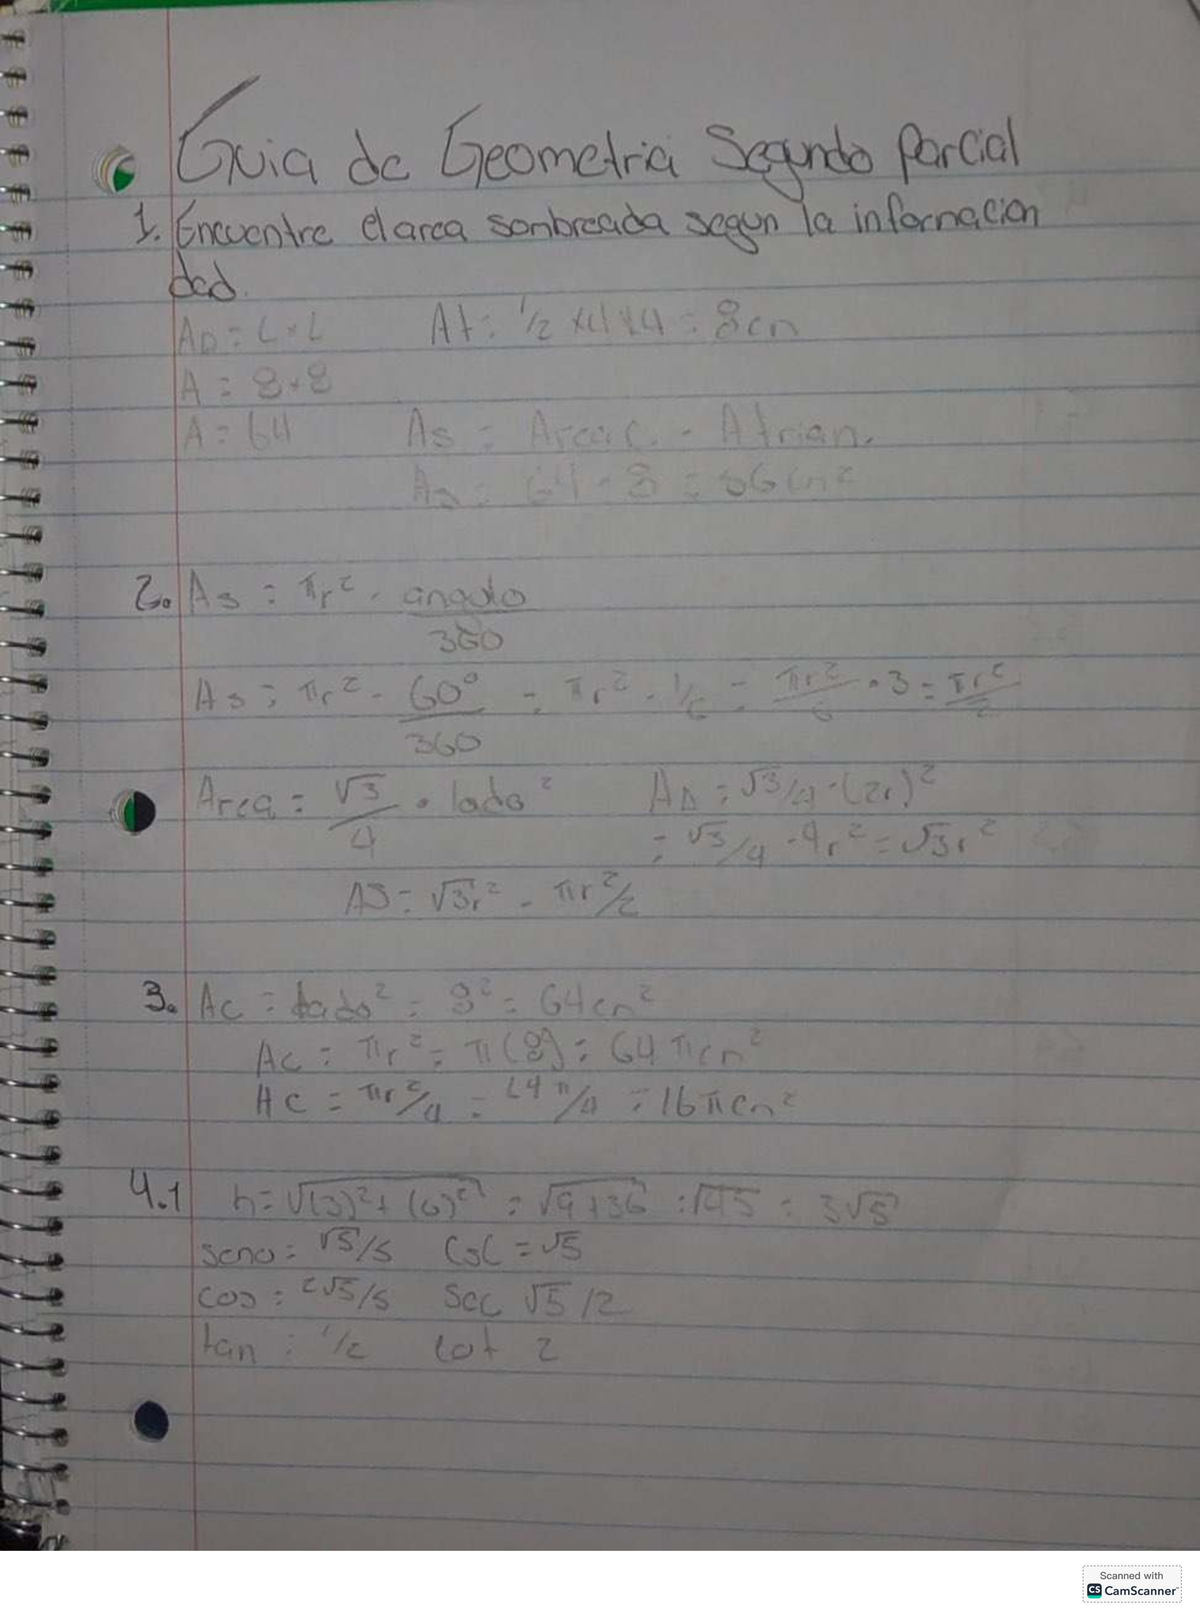 Guia de Geometria Segundo Parcial
1. Encuentre el area sombreada segun la informacion
dad.
A□ = L × L At = 1/2 × 4 × 4 = 8cm
A = 8 × 8
A = 64 As = Area c. - A trian.
As = 64 - 8 = 56 cm²
2. As = πr² · angulo
360
As = πr² · 60° = πr² · 1/6 = πr²/6 · 3 = πr²/2
360
Area = √3/4 · lado² A△ = √3/4 · (2r)²
= √3/4 · 4r² = √3r²
AS = √3r² - πr²/2
3. Ac = lado² = 8² = 64cm²
Ac = πr² = π(8) = 64πcm²
Ac = πr²/4 = 64π/4 = 16πcm²
4.1 h = √(3)² + (6)² = √9+36 = √45 = 3√5
seno = √5/5 Csc = √5
cos = 2√5/5 Sec √5/2
tan = 1/2 cot 2
Scanned with
CS CamScanner